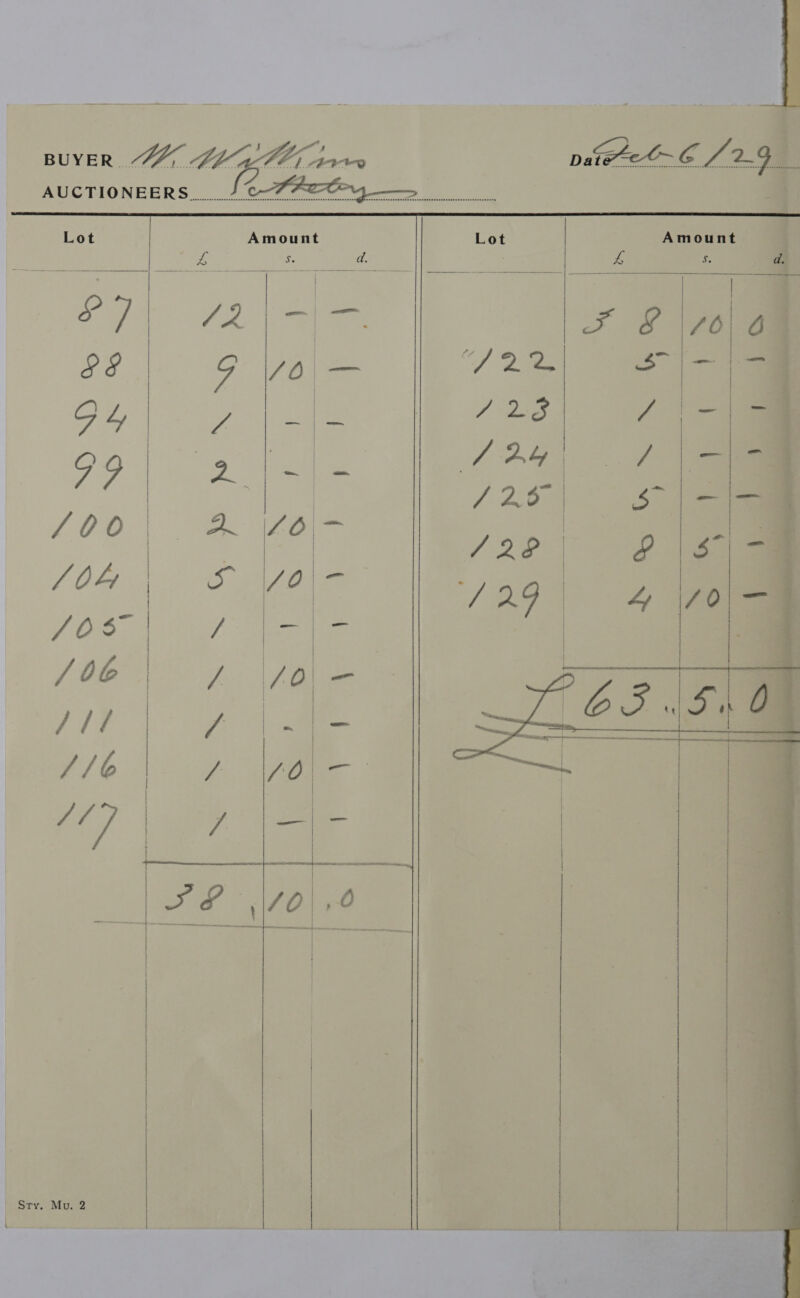 BUYER W. Williams Date Feb 6/29
AUCTIONEERS
Lot Amount Lot Amount
£ s. d. £ s. d.
87 12 — —
88 9 10 —
94 1 — —
99 2 — —
100 2 10 —
104 5 10 —
105 1 — —
106 1 10 —
111 1 - —
116 1 10 —
117 1 — —
38, 10, 0
38 10 0
122 5 — —
123 1 — —
124 1 — —
125 5 — —
128 8 5 —
129 4 10 —
£ 63 .. 5 .. 0
Sty. Mu. 2